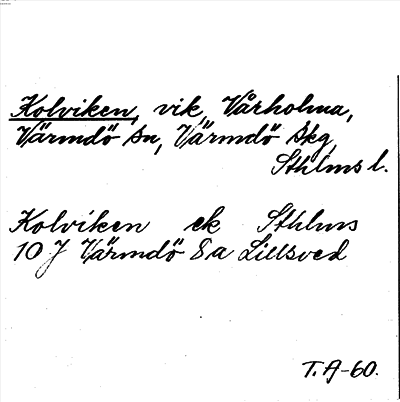 Kolviken, vik, Vårholma,
Värmdö sn, Värmdö skg,
Sthlms l.
Kolviken ek Sthlms
10 J Värmdö 8a Lillsved
T. A-60.